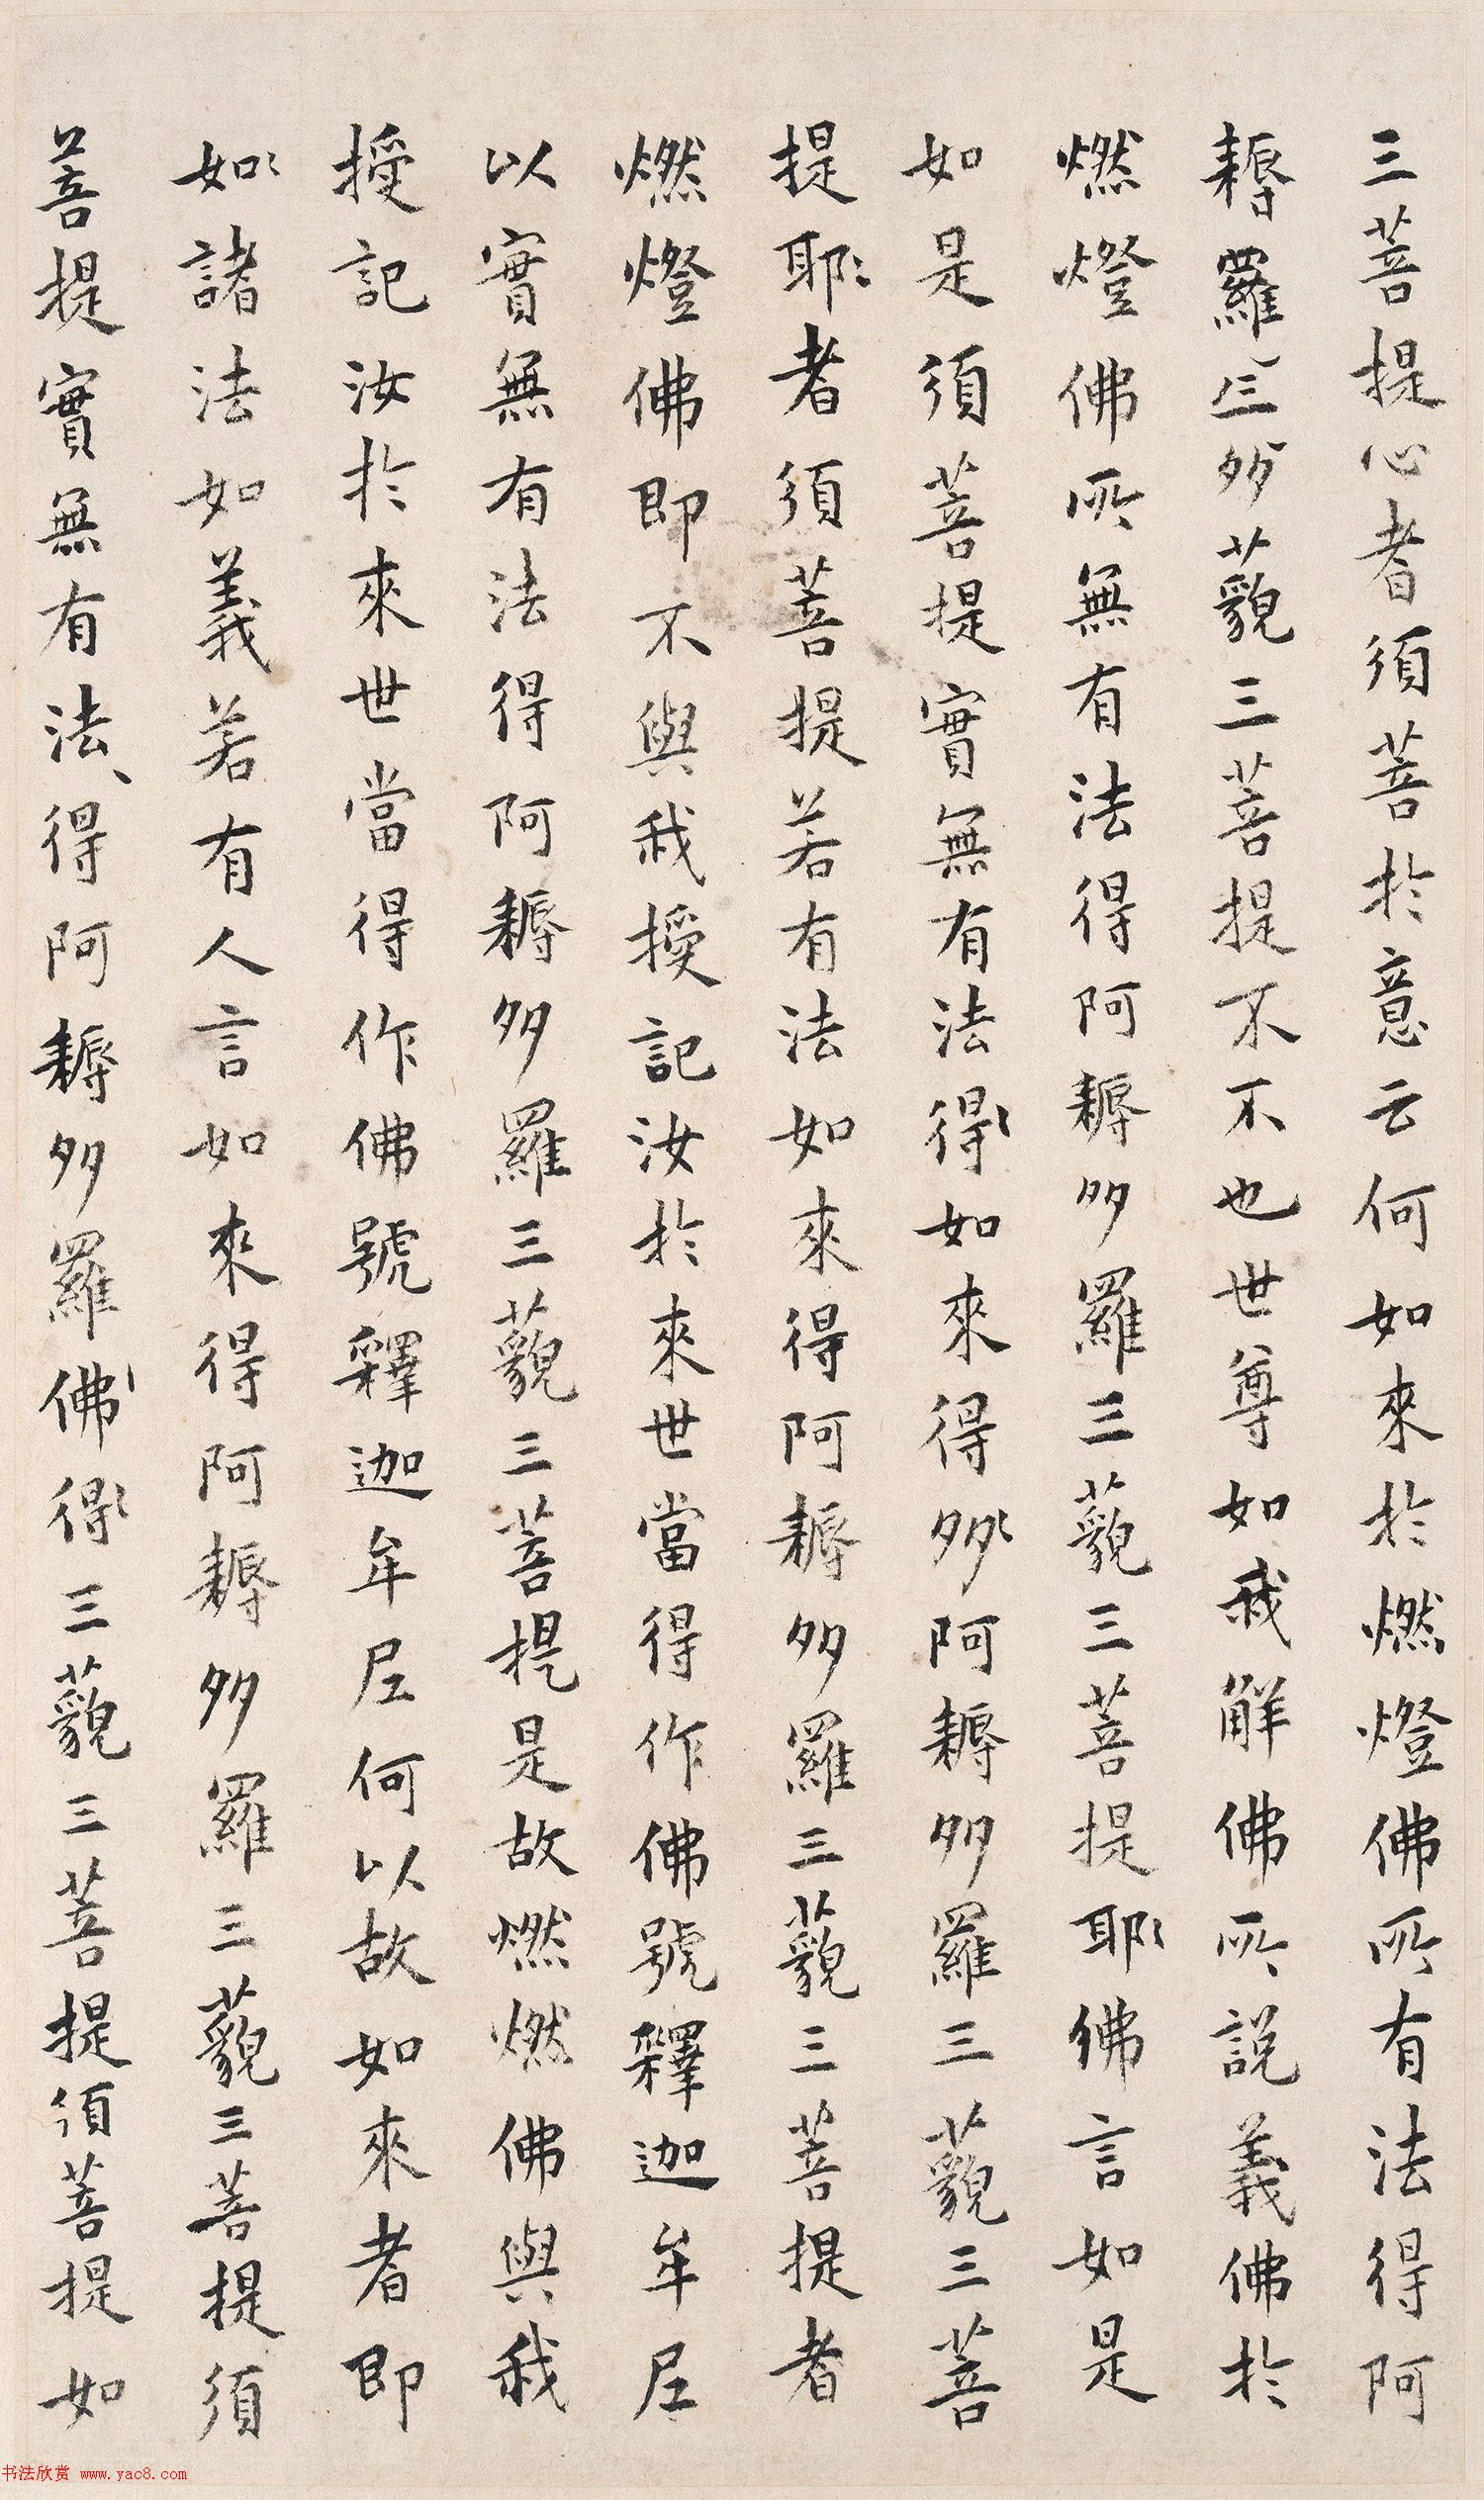 三菩提心者須菩提於意云何如來於燃燈佛所有法得阿
耨羅三多藐三菩提不不也世尊如我解佛所說義佛於
燃燈佛所無有法得阿耨多羅三藐三菩提耶佛言如是
如是須菩提實無有法得如來得多阿耨多羅三藐三菩
提耶者須菩提若有法如來得阿耨多羅三藐三菩提者
燃燈佛即不與我授記汝於來世當得作佛號釋迦牟尼
以實無有法得阿耨多羅三藐三菩提是故燃燃佛與我
授記汝於來世當得作佛號釋迦牟尼何以故如來者即
如諸法如義若有人言如來得阿耨多羅三藐三菩提須
菩提實無有法得阿耨多羅佛得三藐三菩提須菩提如
书法欣赏 www.yac8.com